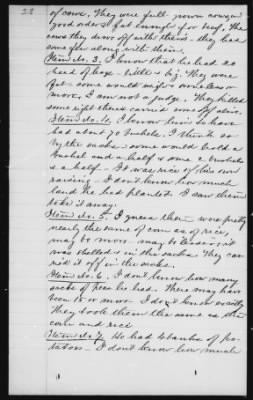 22
of cows. They were full grown cows in
good order & fat enough for beef. The
cows they drove off with theirs - they had
some few along with them.
Item No. 3. I know that he had a
herd of hogs - little & big. They were
fat - some would weigh more less or
more, I am not a judge. They killed
some right there & carried some off alive.
Item No. 4. I know him to have
had about 70 bushels. I think so
by the sacks - some would hold a
bushel and a half & some 2 bushels
& a half - It was rice of his own
raising - I don't know how much
land he had planted. I saw them
take it away.
Item No. 5. I guess there were pretty
nearly the same of corn as of rice,
may be more - may be less - it
was shelled & in the sacks. They car-
ried it off in the sacks.
Item No. 6. I don't know how many
acres of peas he had. There may have
been 10 or more I don't know exactly
They took them the same as the
corn and rice
Item No. 7. He had 40 banks of po-
tatoes - I don't know how much